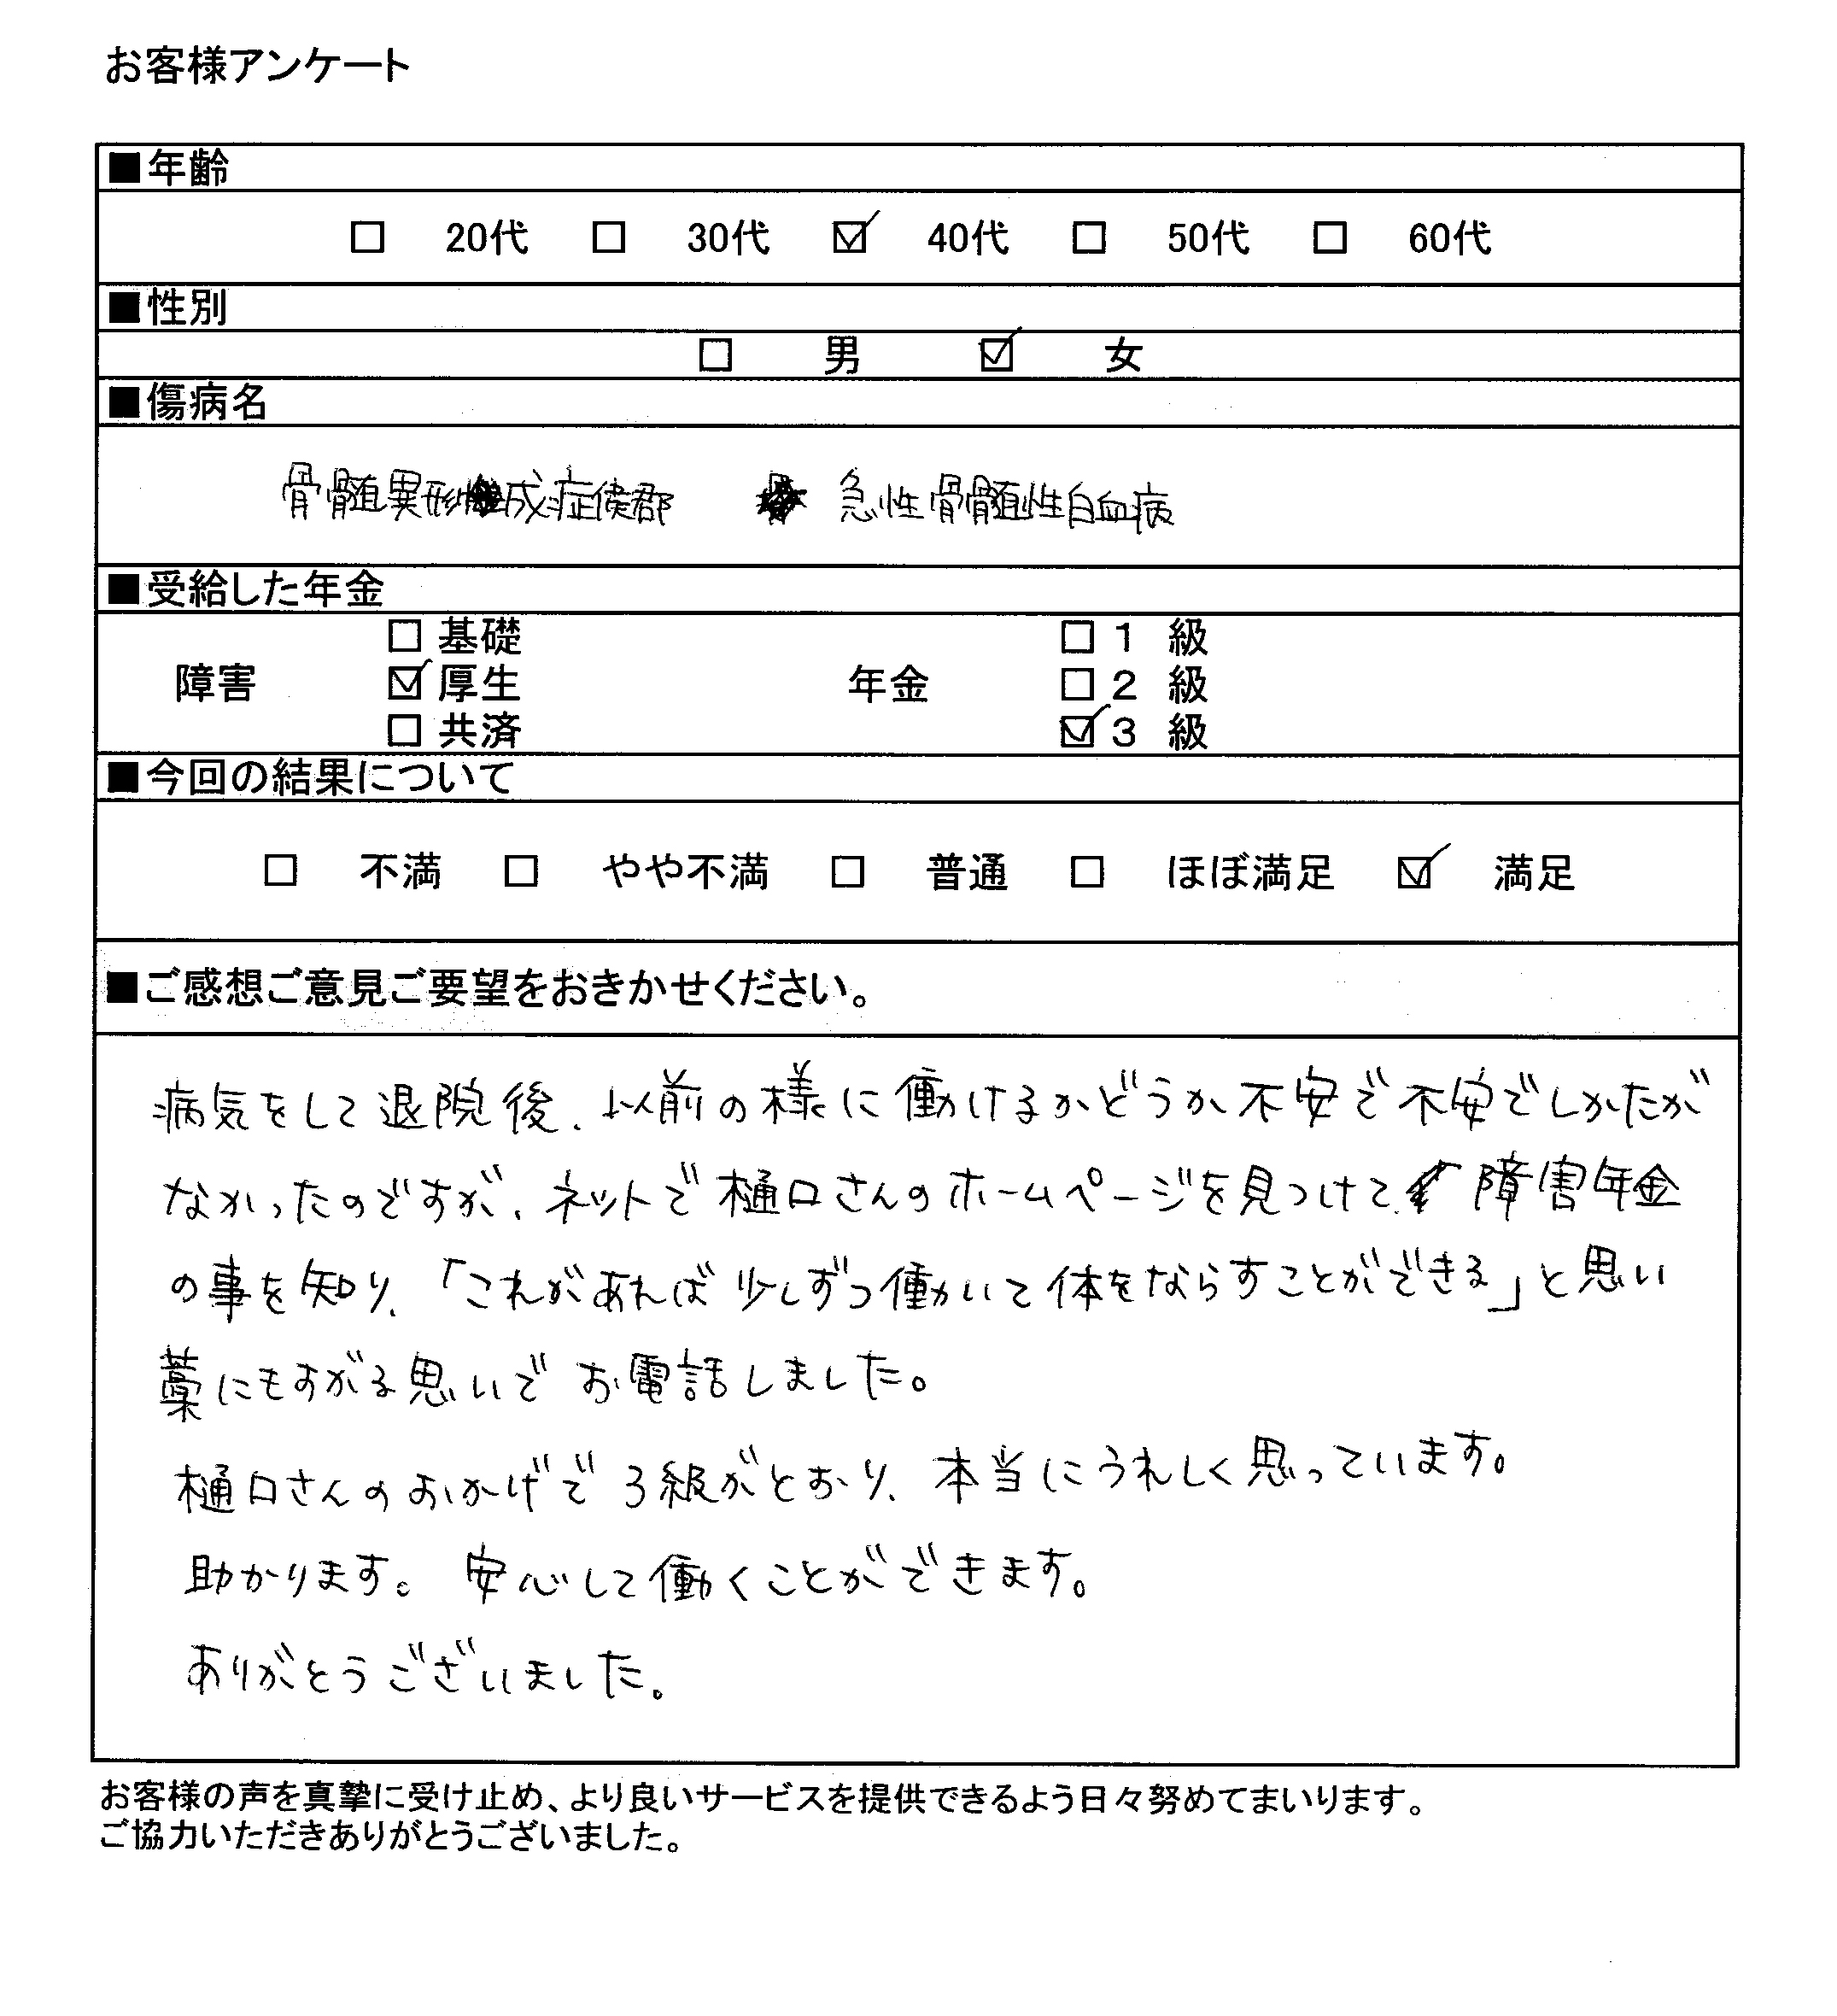 お客様アンケート
■年齢
□ 20代 □ 30代 ☑ 40代 □ 50代 □ 60代
■性別
□ 男 ☑ 女
■傷病名
骨髄異形成症候郡 急性骨髄性白血病
■受給した年金
□基礎 □1 級
障害 ☑厚生 年金 □2 級
□共済 ☑3 級
■今回の結果について
□ 不満 □ やや不満 □ 普通 □ ほぼ満足 ☑ 満足
■ご感想ご意見ご要望をおきかせください。
病気をして退院後、以前の様に働けるかどうか不安で不安でしかたが
なかったのですが、ネットで樋口さんのホームページを見つけて、障害年金
の事を知り、「これがあれば少しずつ働いて体をならすことができる」と思い
藁にもすがる思いでお電話しました。
樋口さんのおかげで3級がとおり、本当にうれしく思っています。
助かります。安心して働くことができます。
ありがとうございました。
お客様の声を真摯に受け止め、より良いサービスを提供できるよう日々努めてまいります。
ご協力いただきありがとうございました。